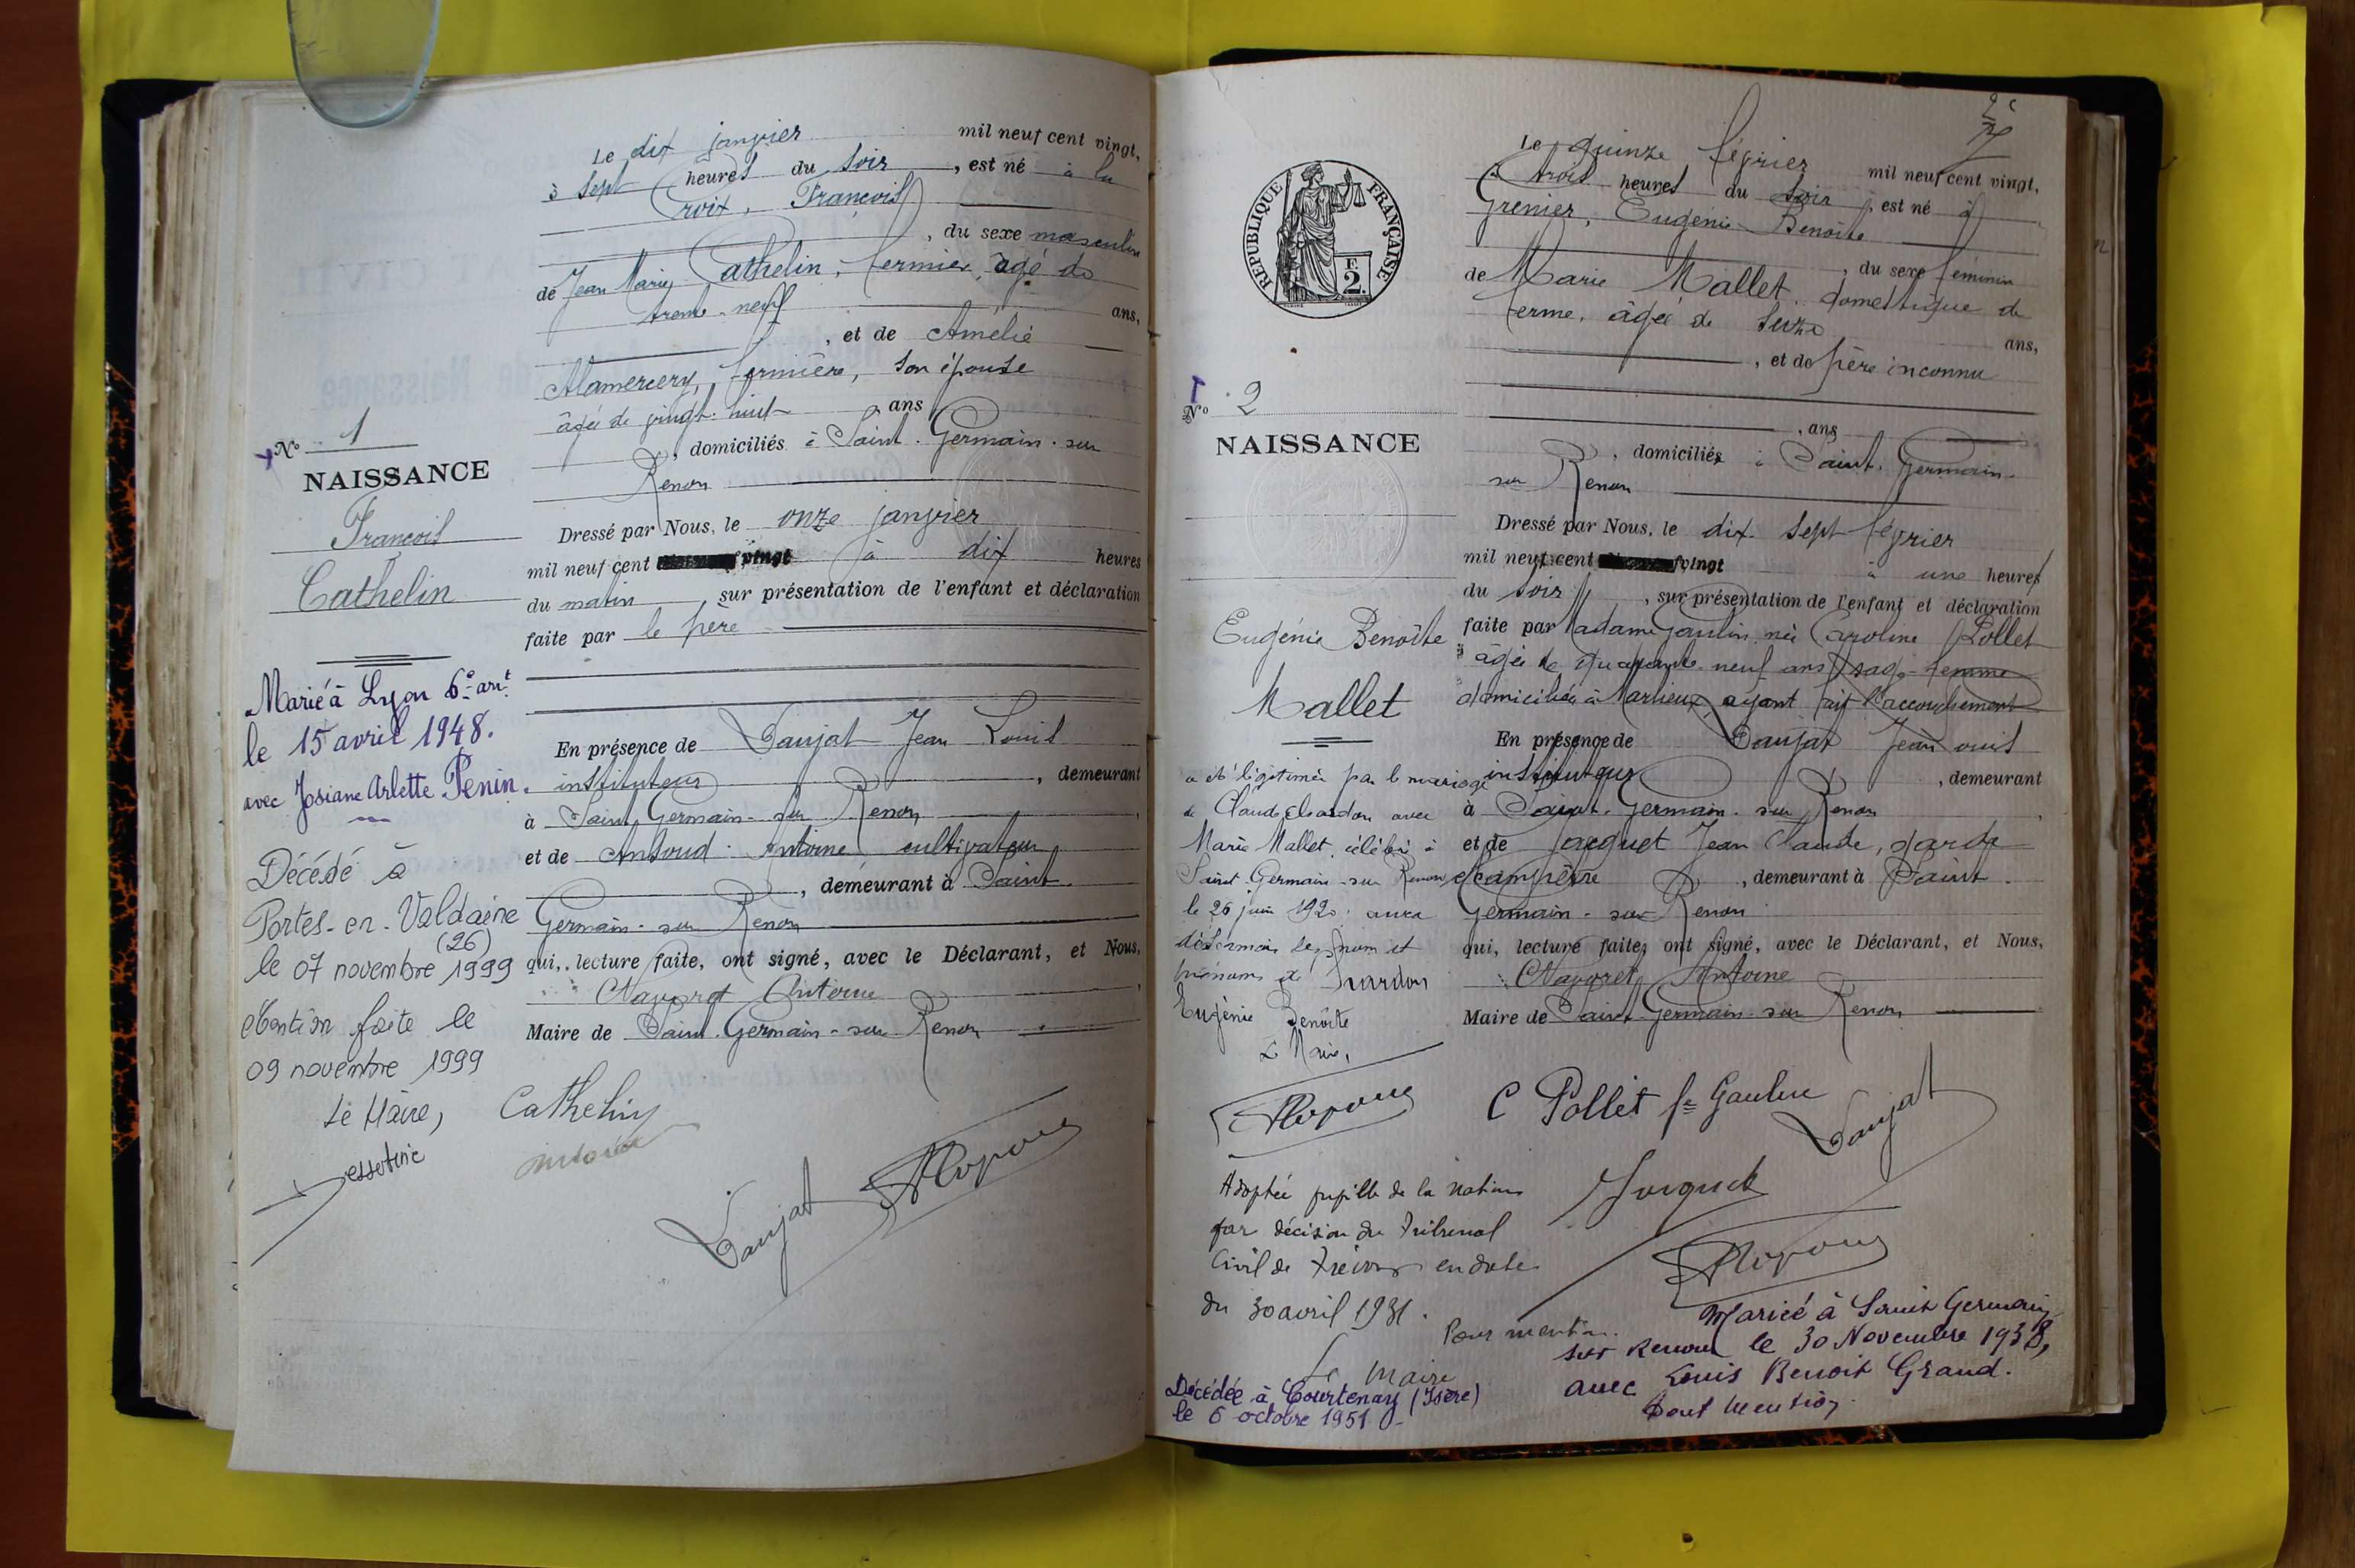 Le dix janvier mil neuf cent vingt,
à sept heures du soir, est né à la
Croix, François
, du sexe masculin
de Jean Marie Cathelin, fermier, âgé de
trente-neuf ans,
, et de Amélie
Alamercery, fermière, son épouse
âgée de vingt-huit ans
, domiciliés à Saint-Germain-sur
Renon
Dressé par Nous, le onze janvier
mil neuf cent vingt à dix heures
du matin, sur présentation de l'enfant et déclaration
faite par le père
En présence de Daujat Jean Louis
instituteur, demeurant
à Saint-Germain-sur Renon
et de Antoine cultivateur
, demeurant à Saint
Germain-sur Renon
qui, lecture faite, ont signé, avec le Déclarant, et Nous,
Antoine
Maire de Saint-Germain-sur Renon
Cathelin
Daujat
No 1
NAISSANCE
François
Cathelin
Marié à Lyon 6e arrt
le 15 avril 1948.
avec Josiane Arlette Penin.
Décédé à
Portes-en-Valdaine
(26)
le 07 novembre 1999
Mention faite le
09 novembre 1999
Le Maire,
2e
Le quinze février mil neuf cent vingt,
à trois heures du soir, est né à
Grenier, Eugénie Benoîte
, du sexe féminin
de Marie Mallet, domestique de
ferme, âgée de seize ans,
, et de père inconnu
, ans
, domiciliés à Saint-Germain-
sur Renon
Dressé par Nous, le dix-sept février
mil neuf cent vingt à une heures
du soir, sur présentation de l'enfant et déclaration
faite par Madame Gaulin née Caroline Pollet
âgée de quarante-neuf ans sage-femme
domiciliée à Marlieux, ayant fait l'accouchement
En présence de Daujat Jean Louis
instituteur, demeurant
à Saint-Germain-sur Renon
et de Jacquet Jean Claude, garde
champêtre, demeurant à Saint
Germain-sur Renon
qui, lecture faite, ont signé, avec le Déclarant, et Nous,
Antoine
Maire de Saint-Germain-sur Renon
C Pollet fe Gaulin
Daujat
Jacquet
RÉPUBLIQUE FRANÇAISE
F
2
No 2
NAISSANCE
Eugénie Benoîte
Mallet
a été légitimée par le mariage
de Claude Chardon avec
Marie Mallet, célébré à
Saint-Germain-sur Renon
le 26 juin 1920; aura
désormais les nom et
prénoms de Chardon
Eugénie Benoîte
Le Maire,
Adoptée pupille de la Nation
par décision du Tribunal
Civil de Trévoux en date
du 30 avril 1931.
Pour mention.
Le Maire
Décédée à Courtenay (Isère)
le 6 octobre 1951
Mariée à Saint Germain
sur Renon le 30 Novembre 1938,
avec Louis Benoit Grand.
Dont Mention